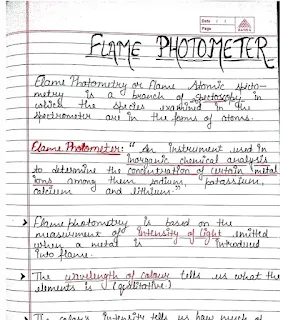 Date
Page
FLAME PHOTOMETER
Flame Photometry or Flame Atomic Spectro-
metry is a branch of Spectroscopy in
which the species examined in the
spectrometer are in the forms of atoms.
Flame Photometer: "An instrument used in
inorganic chemical analysis
to determine the concentration of certain metal
ions among them sodium, potassium,
calcium and lithium."
Flame photometry is based on the
measurement of intensity of light emitted
when a metal is introduced
into flame.
The wavelength of colour tells us what the
elements is (qualitative)
The colour's intensity tells us how much of